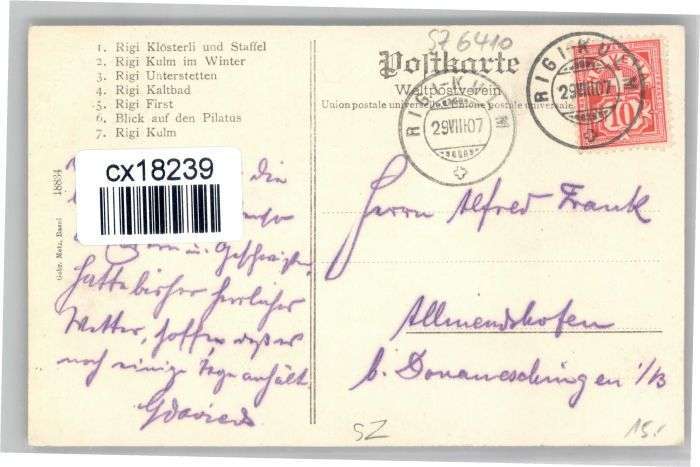 SZ 6410
1. Rigi Klösterli und Staffel
2. Rigi Kulm im Winter
3. Rigi Unterstetten
4. Rigi Kaltbad
5. Rigi First
6. Blick auf den Pilatus
7. Rigi Kulm
Postkarte
Weltpostverein
Union postale universelle. Unione postale universale.
RIGI-KULM
29.VIII.07
RIGI-KULM
29.VIII.07
HELVETIA
10
cx18239
18834
Gebr. Metz, Basel
die
u. Geschwister,
hatte bisher herrliches
Wetter, hoffen daß es
noch einige Tage anhält.
Herrn Alfred Frank
Allmendshofen
b. Donaueschingen i/B
SZ
15.-